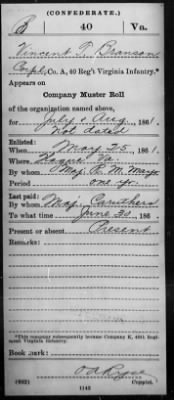 (CONFEDERATE.)
B 40 Va.
Vincent T. Branson
Corpl, Co. A, 40 Reg't Virginia Infantry.*
Appears on
Company Muster Roll
of the organization named above,
for July & Aug, 1861.
Not dated
Enlisted:
When May 25, 1861.
Where Va.
By whom Maj. R. M. Mayo
Period one yr.
Last paid:
By whom Maj. Caruthers
To what time June 30, 186 .
Present or absent Present
Remarks:
*This company subsequently became Company E, 40th Regiment Virginia Infantry.
Book mark:
(642)
1142
Copyist.